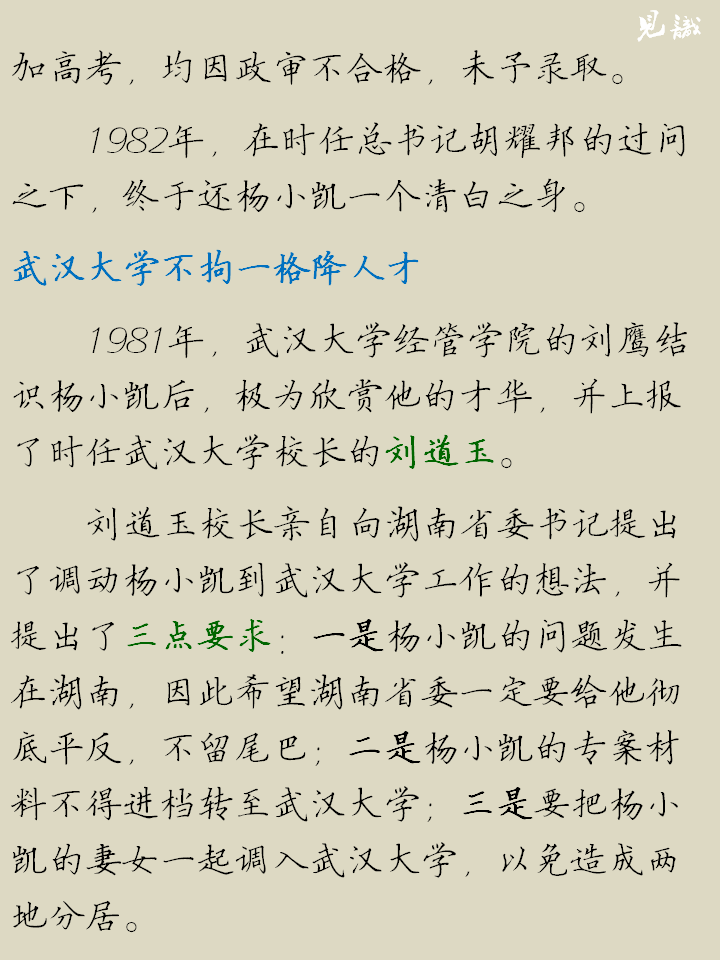 見識
加高考，均因政审不合格，未予录取。
1982年，在时任总书记胡耀邦的过问
之下，终于还杨小凯一个清白之身。
武汉大学不拘一格降人才
1981年，武汉大学经管学院的刘鹰结
识杨小凯后，极为欣赏他的才华，并上报
了时任武汉大学校长的刘道玉。
刘道玉校长亲自向湖南省委书记提出
了调动杨小凯到武汉大学工作的想法，并
提出了三点要求：一是杨小凯的问题发生
在湖南，因此希望湖南省委一定要给他彻
底平反，不留尾巴；二是杨小凯的专案材
料不得进档转至武汉大学；三是要把杨小
凯的妻女一起调入武汉大学，以免造成两
地分居。